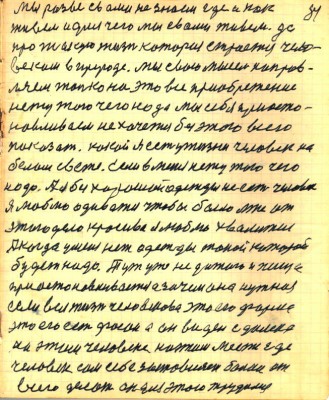 мы разве с вами не знаем где и как
живем и для чего мы с вами живем. да
про такую жизнь которая строется чело-
веком в природе. мы свои мысли направ-
ляем только на это все приобретение
нету того чего надо мы себя приоста-
навливаем не хочется бы этого всего
показат. какой я есть у жизни человек на
белом свете. Если в меня нету того чего
надо. Я бы хорошой одежды не
я люблю одиватся чтобы было мне от
этого дела красива я люблю хвалится
А когда у меня нет одежды такой которой
будет надо. Тут уже не до и
приостановливается зачем она нужная
если вся жизнь человекова это его форма
это его ест а он виден с далека
на этом человека на таком месте где
человек сам себе заготовляет более от
всего делает он для этого трудится